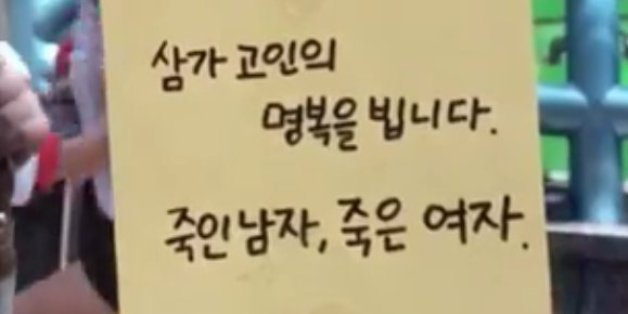 삼가 고인의
명복을 빕니다.
죽인남자, 죽은 여자.